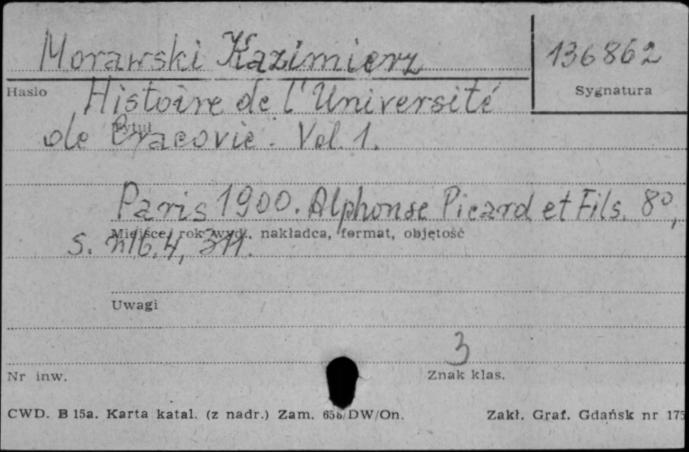 Morawski Kazimierz
136862
Hasło
Sygnatura
Histoire de l'Université
Tytuł
de Cracovie. Vol. 1.
Paris 1900. Alphonse Picard et Fils. 8°,
Miejsce, rok wyd., nakładca, format, objętość
s. 4, 311.
Uwagi
3
Nr inw.
Znak klas.
CWD. B 15a. Karta katal. (z nadr.) Zam. DW/On.
Zakł. Graf. Gdańsk nr 175